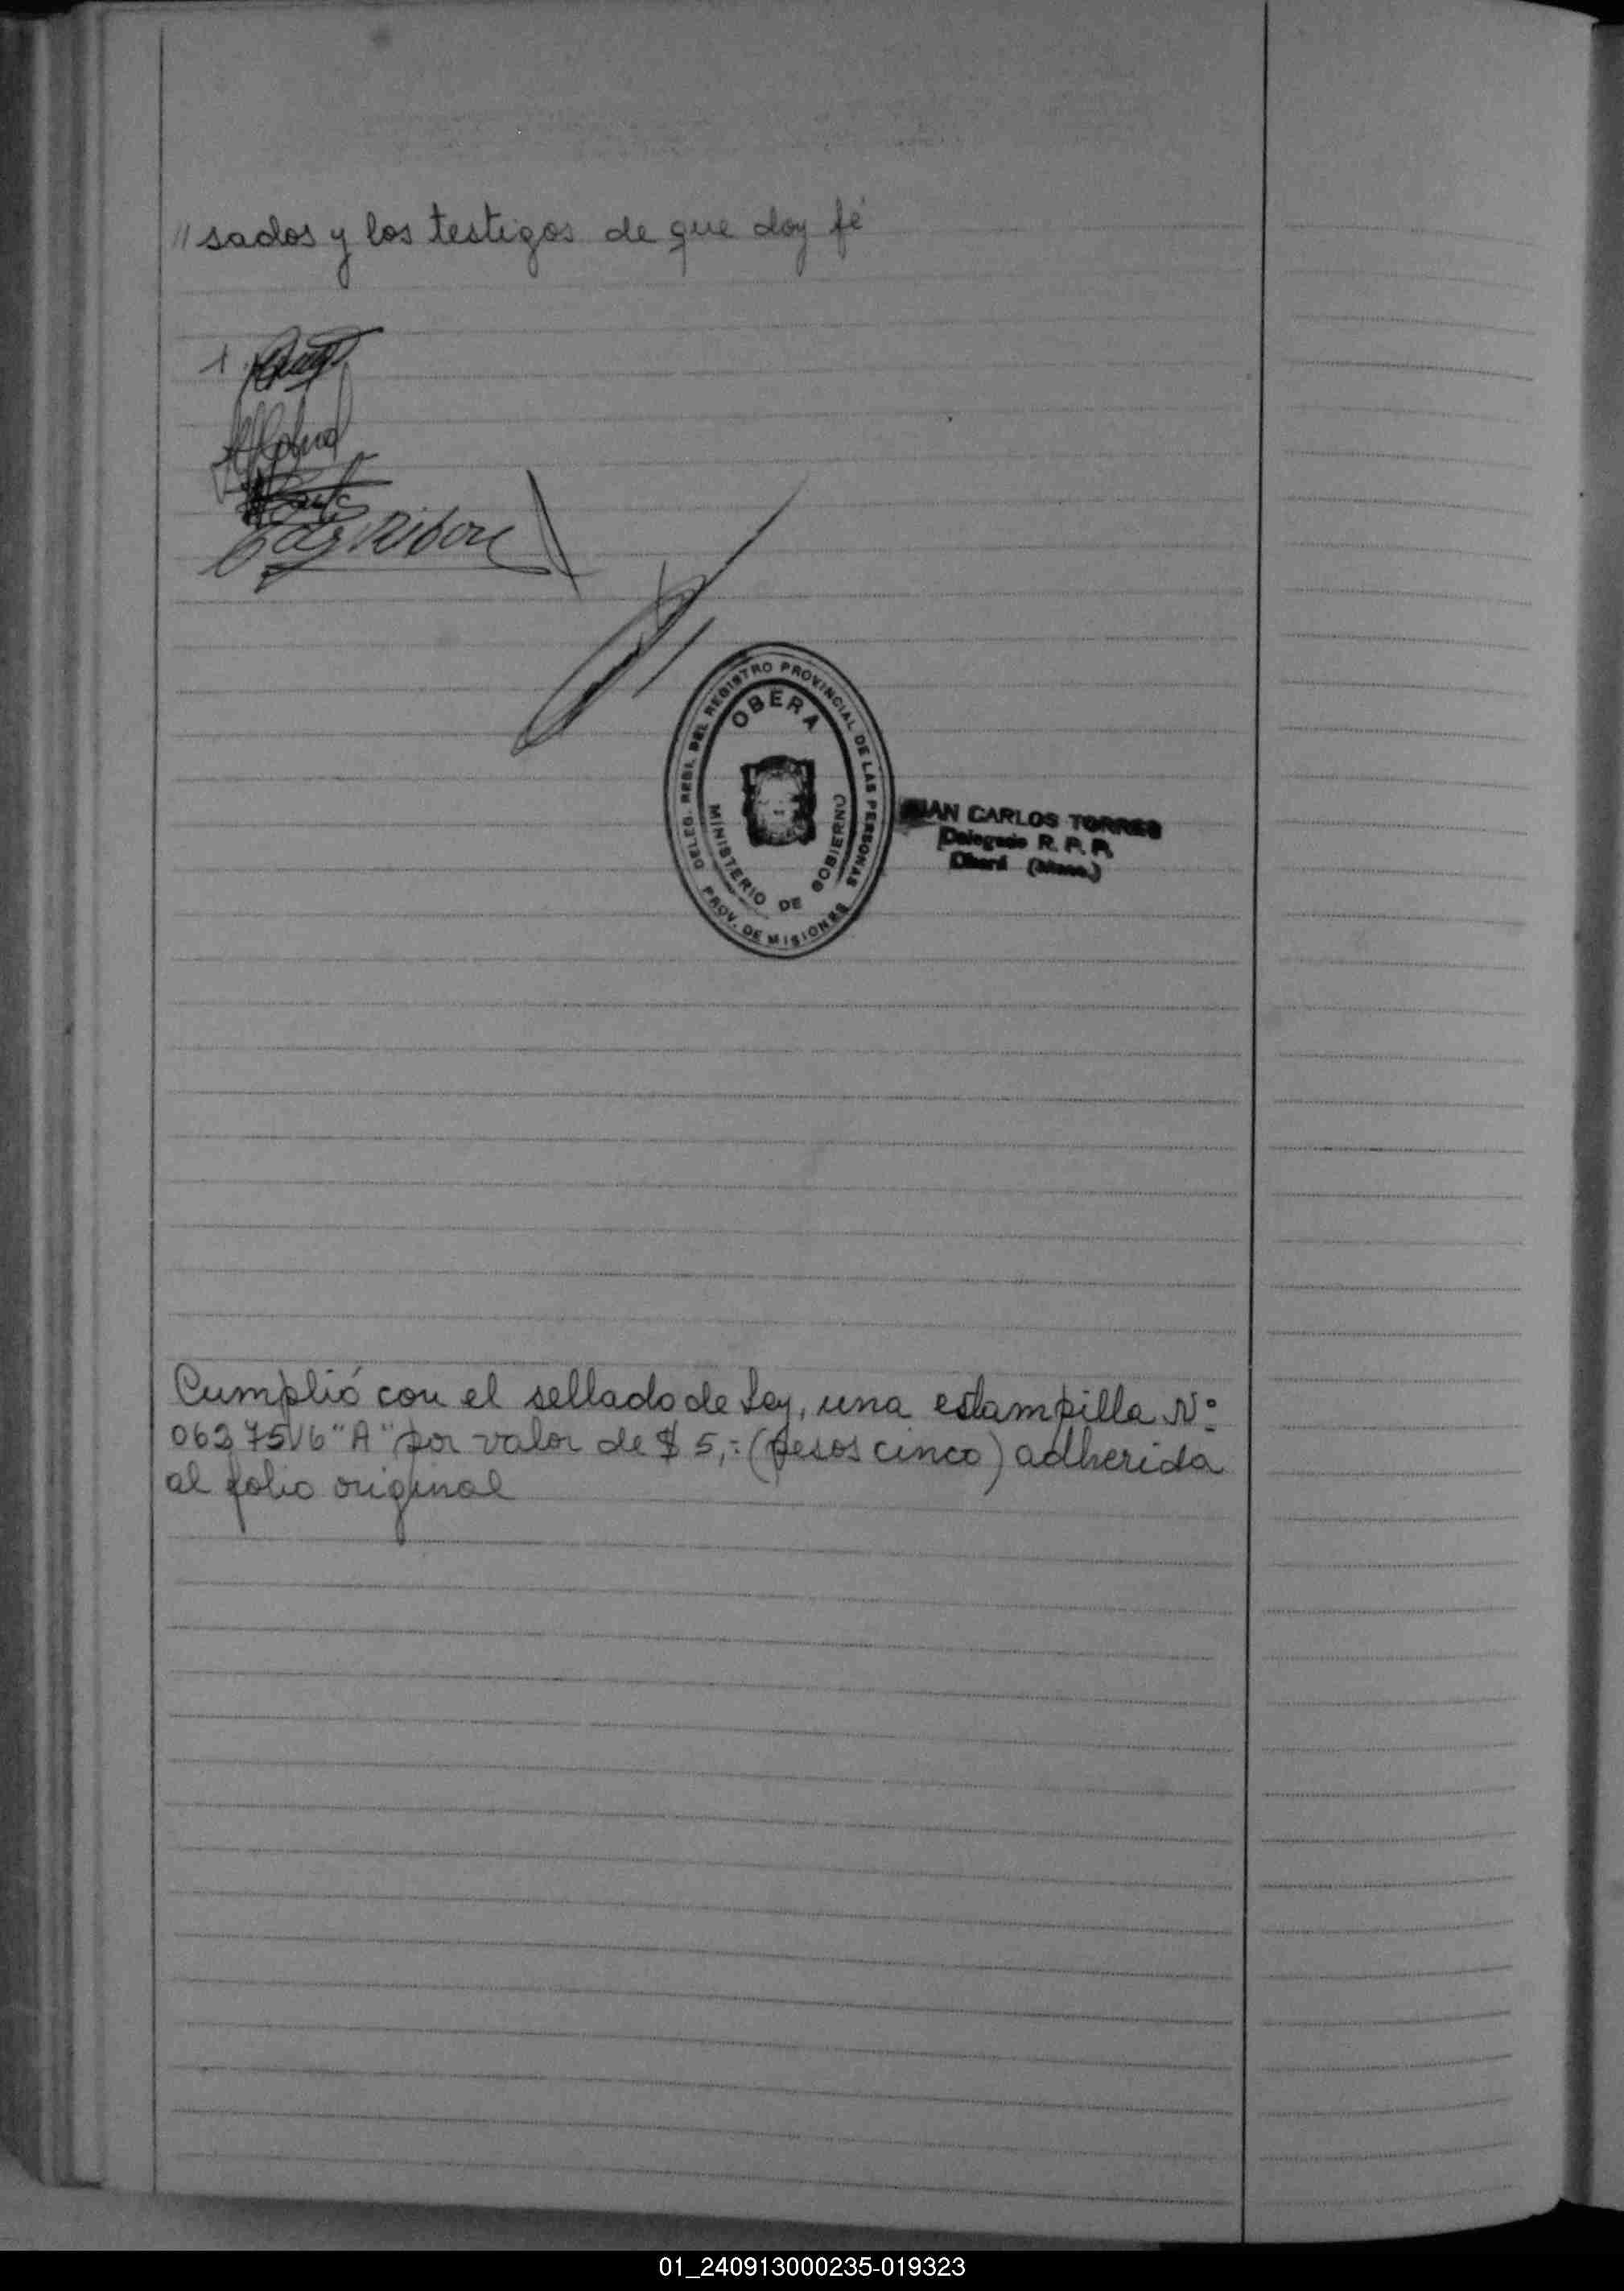 // sados y los testigos de que doy fé
DELEG. REGL. DEL REGISTRO PROVINCIAL DE LAS PERSONAS
OBERA
MINISTERIO DE GOBIERNO
PROV. DE MISIONES
JUAN CARLOS TORRES
Delegado R. P. P.
Oberá (Mnes.)
Cumplió con el sellado de Ley, una estampilla Nº
"A" por valor de $ 5,= (pesos cinco) adherida
al folio original
01_240913000235-019323